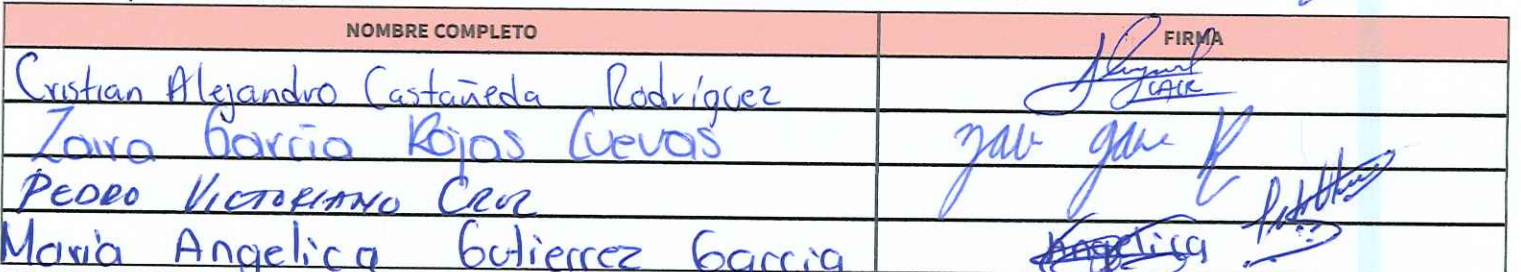 NOMBRE COMPLETO FIRMA
Cristian Alejandro Castañeda Rodríguez
Zaira García Rojas Cuevas
PEDRO VICTORIANO CRUZ
María Angelica Gutierrez Garcia Angelica